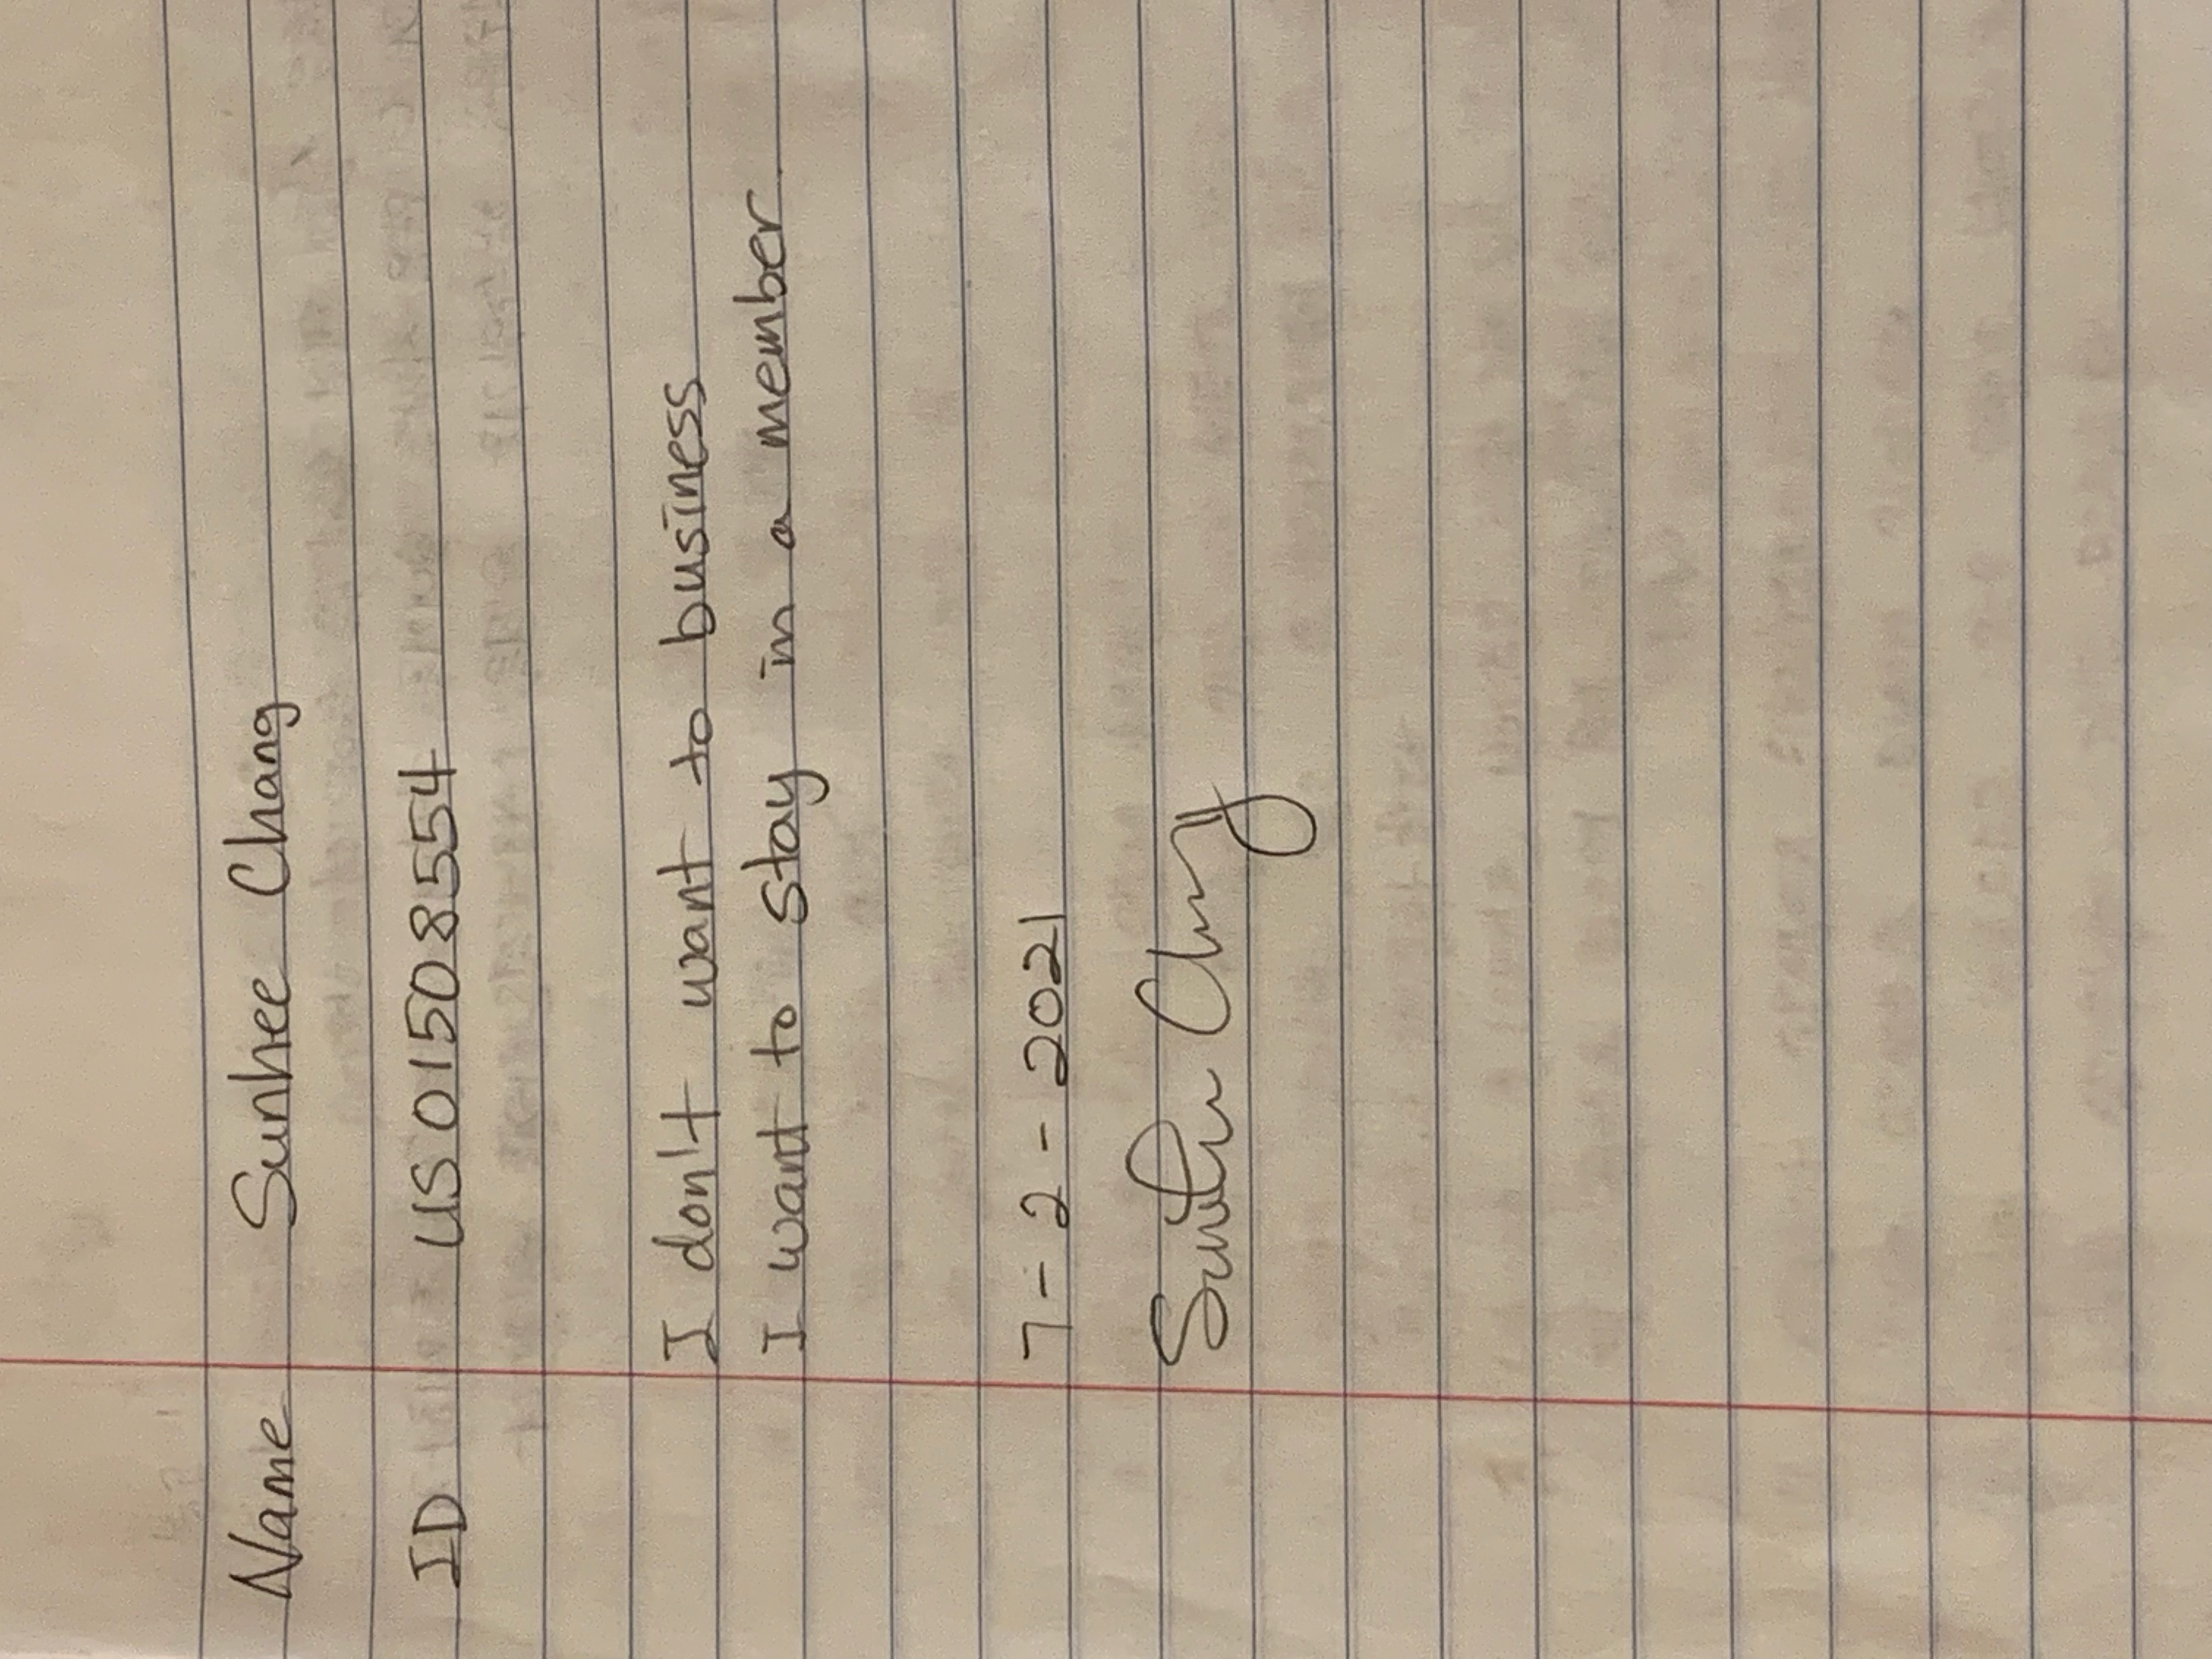 Name Sunhee Chang
ID US01508554
I don't want to business
I want to stay in a member.
7-2-2021
Sunhee Chang